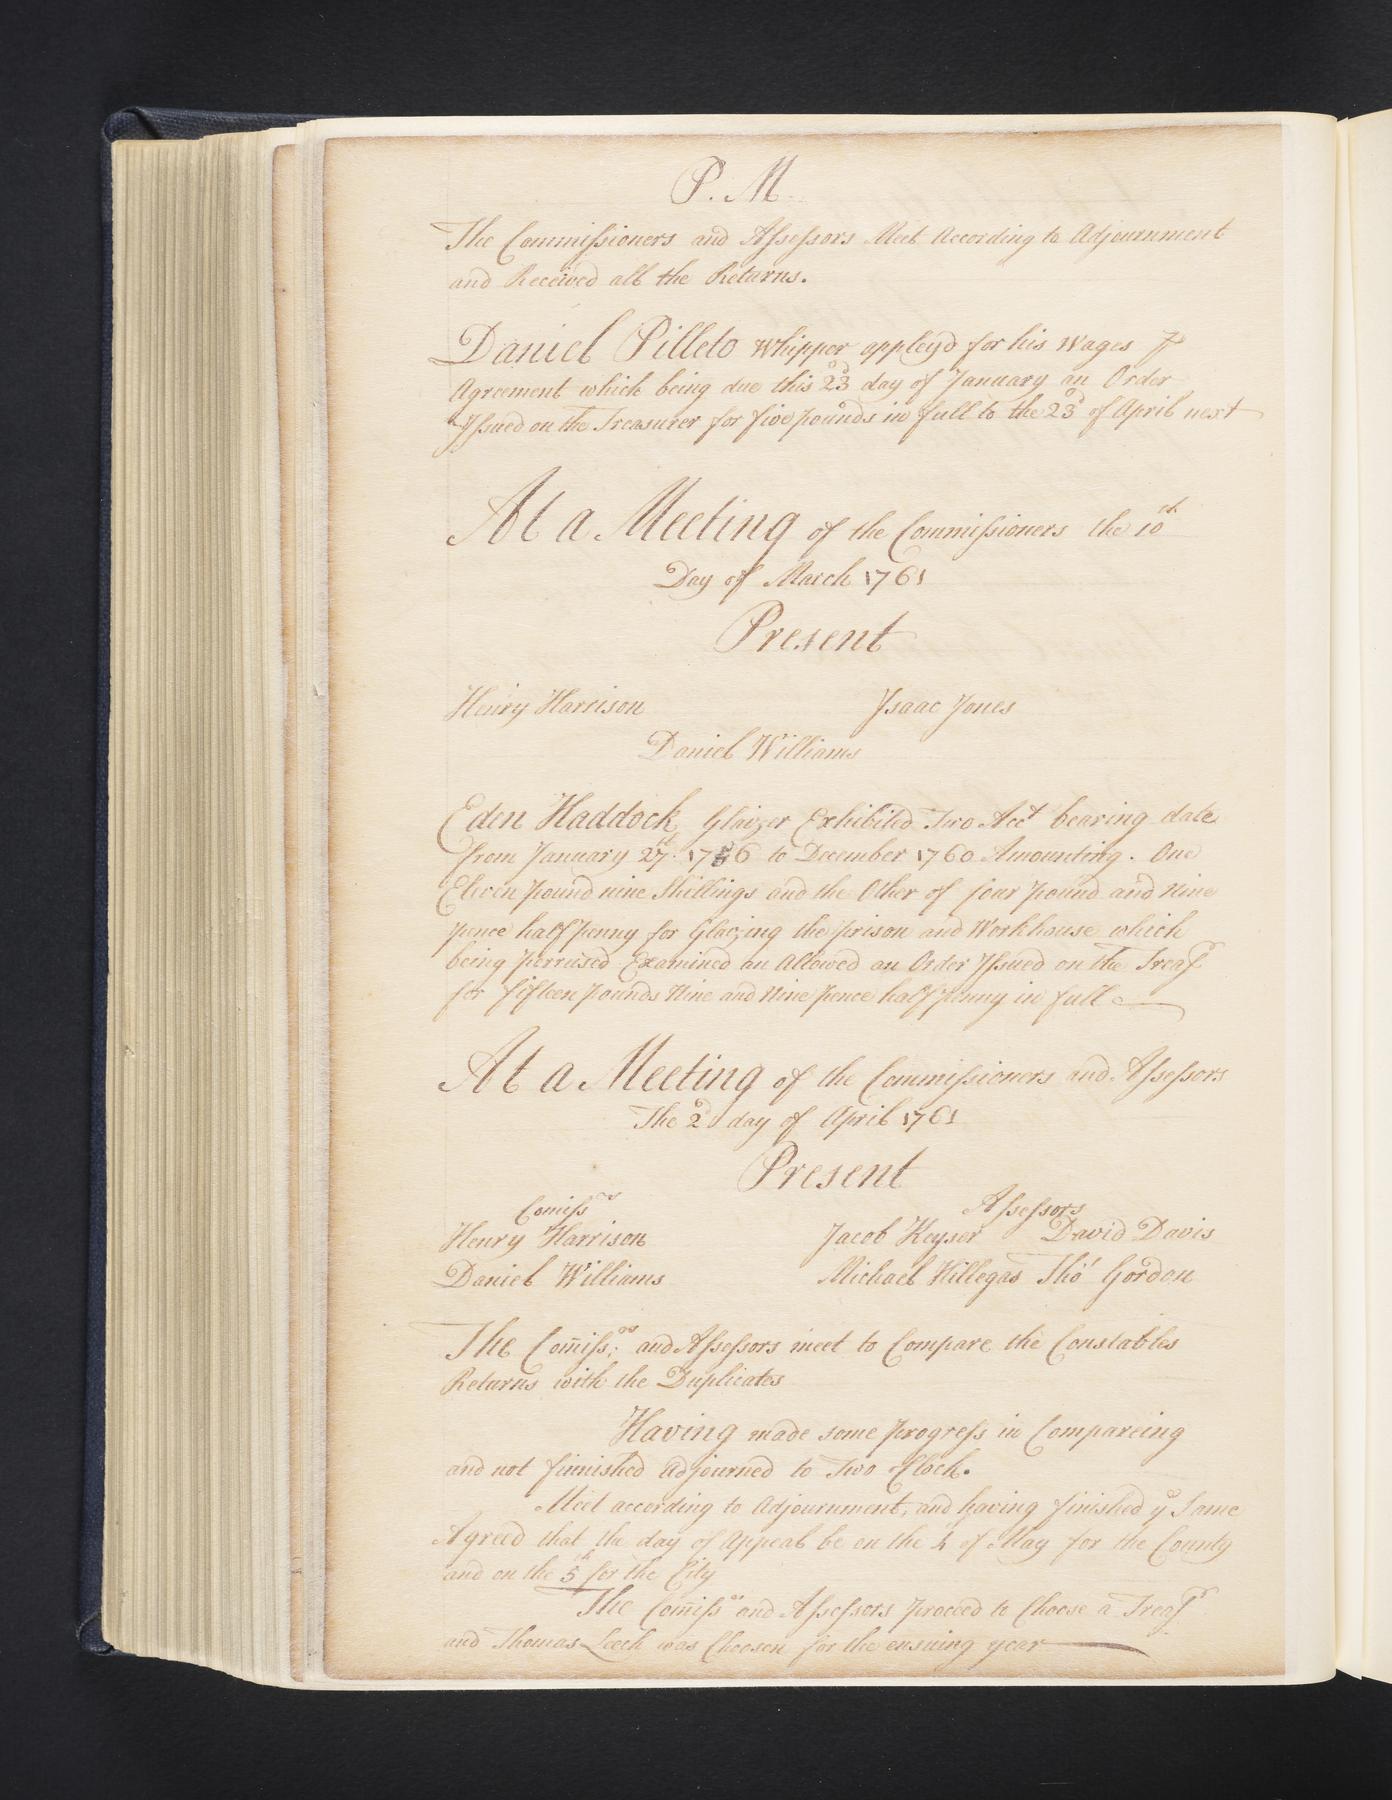 P. M.
The Commissioners and Assessors Meet According to Adjournment
and Received all the Returns.
Daniel Pilleto Whipper appleyd for his Wages ⅌
Agreement which being due this 23d day of January an Order
Issued on the Treasurer for five pounds in full to the 23d of April next
At a Meeting of the Commissioners the 10th
Day of March 1761
Present
Henry Harrison Isaac Jones
Daniel Williams
Eden Haddock Glaizer Exhibited Two Acct bearing date
from January 27th 1756 to December 1760 Amounting. One
Eleven pound nine Shillings and the Other of four pound and Nine
pence half penny for Glazing the prison and Workhouse which
being perrused Examined an Allowed an Order Issued on the Treasr
for fifteen pounds Nine and Nine pence half penny in full
At a Meeting of the Commissioners and Assessors
The 2d day of April 1761
Present
Comissrs Assessors
Henry Harrison Jacob Keyser David Davis
Daniel Williams Michael Hillegas Tho' Gordon
The Com̄iss:rs and Assessors meet to Compare the Constables
Returns with the Duplicates
Having made some progress in Compareing
and not finnished Adjourned to Two oClock.
Meet according to Adjournment, and having finished ye Same
Agreed that the day of Appeal be on the 4 of May for the County
and on the 5th for the City
The Com̄issrs and Assessors proceed to Choose a Treasr
and Thomas Leech was Choosen for the ensuing year